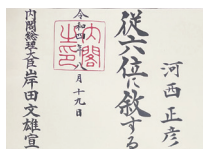 河西正彦
従六位に叙する
令和四年八月十九日
内閣之印
内閣総理大臣岸田文雄宣